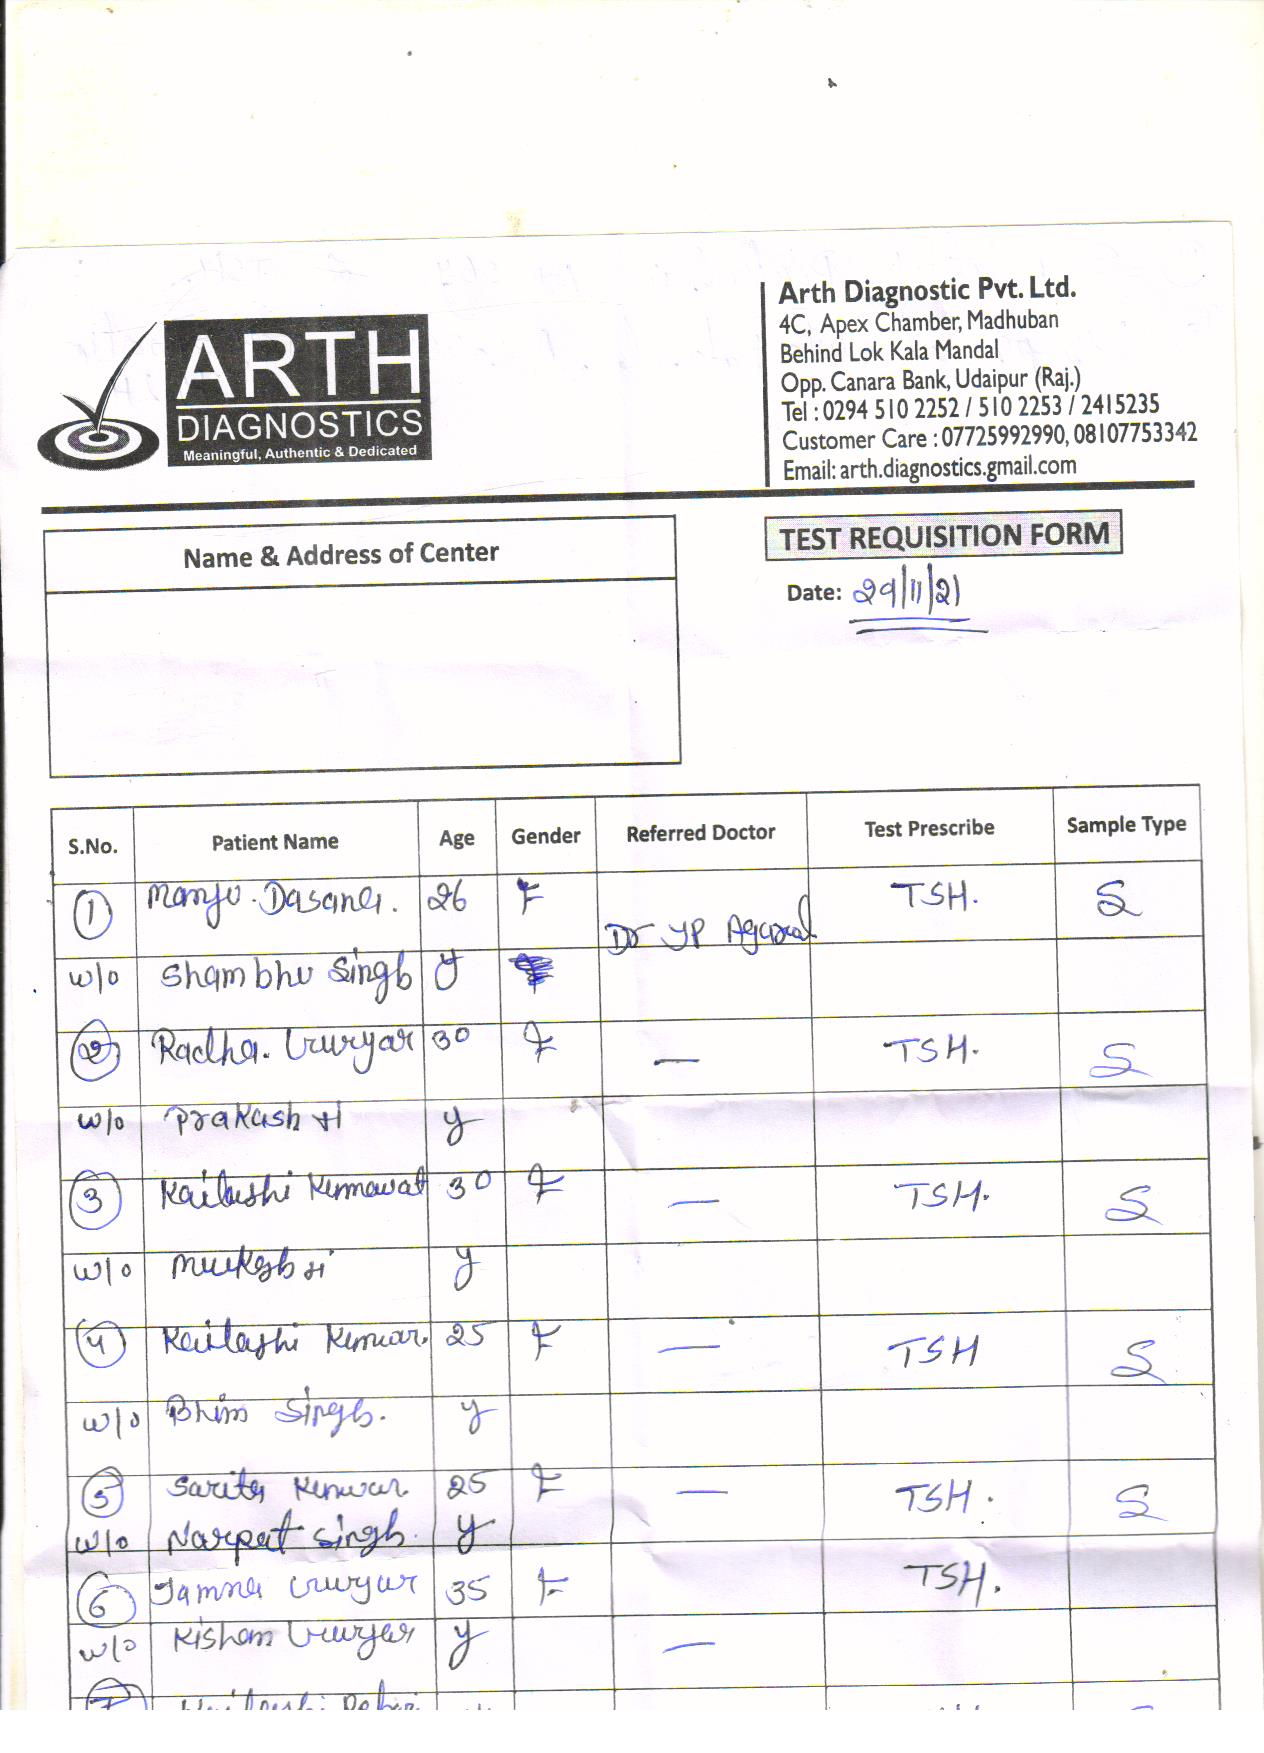 ARTH
DIAGNOSTICS
Meaningful, Authentic & Dedicated
Arth Diagnostic Pvt. Ltd.
4C, Apex Chamber, Madhuban
Behind Lok Kala Mandal
Opp. Canara Bank, Udaipur (Raj.)
Tel : 0294 510 2252 / 510 2253 / 2415235
Customer Care : 07725992990, 08107753342
Email: arth.diagnostics.gmail.com
Name & Address of Center
TEST REQUISITION FORM
Date: 29/11/21
S.No. Patient Name Age Gender Referred Doctor Test Prescribe Sample Type
1 Manju. 26 F Dr YP Agarwal TSH. S
w/o Shambhu Singh y
2 Radha. 30 F — TSH. S
w/o Prakash Ji y
3 Kailashi Kumawat 30 F — TSH. S
w/o Mukesh Ji y
4 Kailashi Kunwar. 25 F — TSH S
w/o Bhim Singh. y
5 Sarita Kunwar. 25 F — TSH. S
w/o Narpat Singh. y
6 Jamna 35 F TSH.
w/o Kishan y —
7 Kailashi